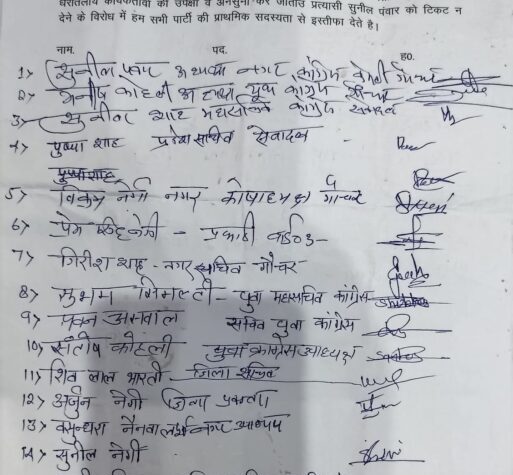 धरातलीय कार्यकर्ता की उपेक्षा व अनसुनी कर जिताउ प्रत्याशी सुनील पंवार को टिकट न
देने के विरोध में हम सभी पार्टी की प्राथमिक सदस्यता से इस्तीफा देते है।
नाम. पद. ह0.
1> सुनील पंवार अध्यक्ष नगर कांग्रेस कमेटी गौचर
2> संतोष कोहली अध्यक्ष युथ कांग्रेस गौचर
3> सुनील शाह महासचिव कांग्रेस
4> पुष्पा शाह प्रदेश सचिव सेवादल
पुष्पा शाह
5> विक्रम नेगी नगर कोषाध्यक्ष गौचर
6> प्रेम सिंह नेगी - प्रभारी वार्ड 03-
7> गिरीश शाह - नगर सचिव गौचर
8> शुभम - युवा महासचिव कांग्रेस
9> पवन सचिव युवा कांग्रेस
10> संतोष कोहली युवा कांग्रेस उपाध्यक्ष
11> शिव लाल भारती - जिला सचिव
12> अर्जुन नेगी जिला प्रवक्ता
13> वसुन्धरा नैनवाल
14> सुनील नेगी